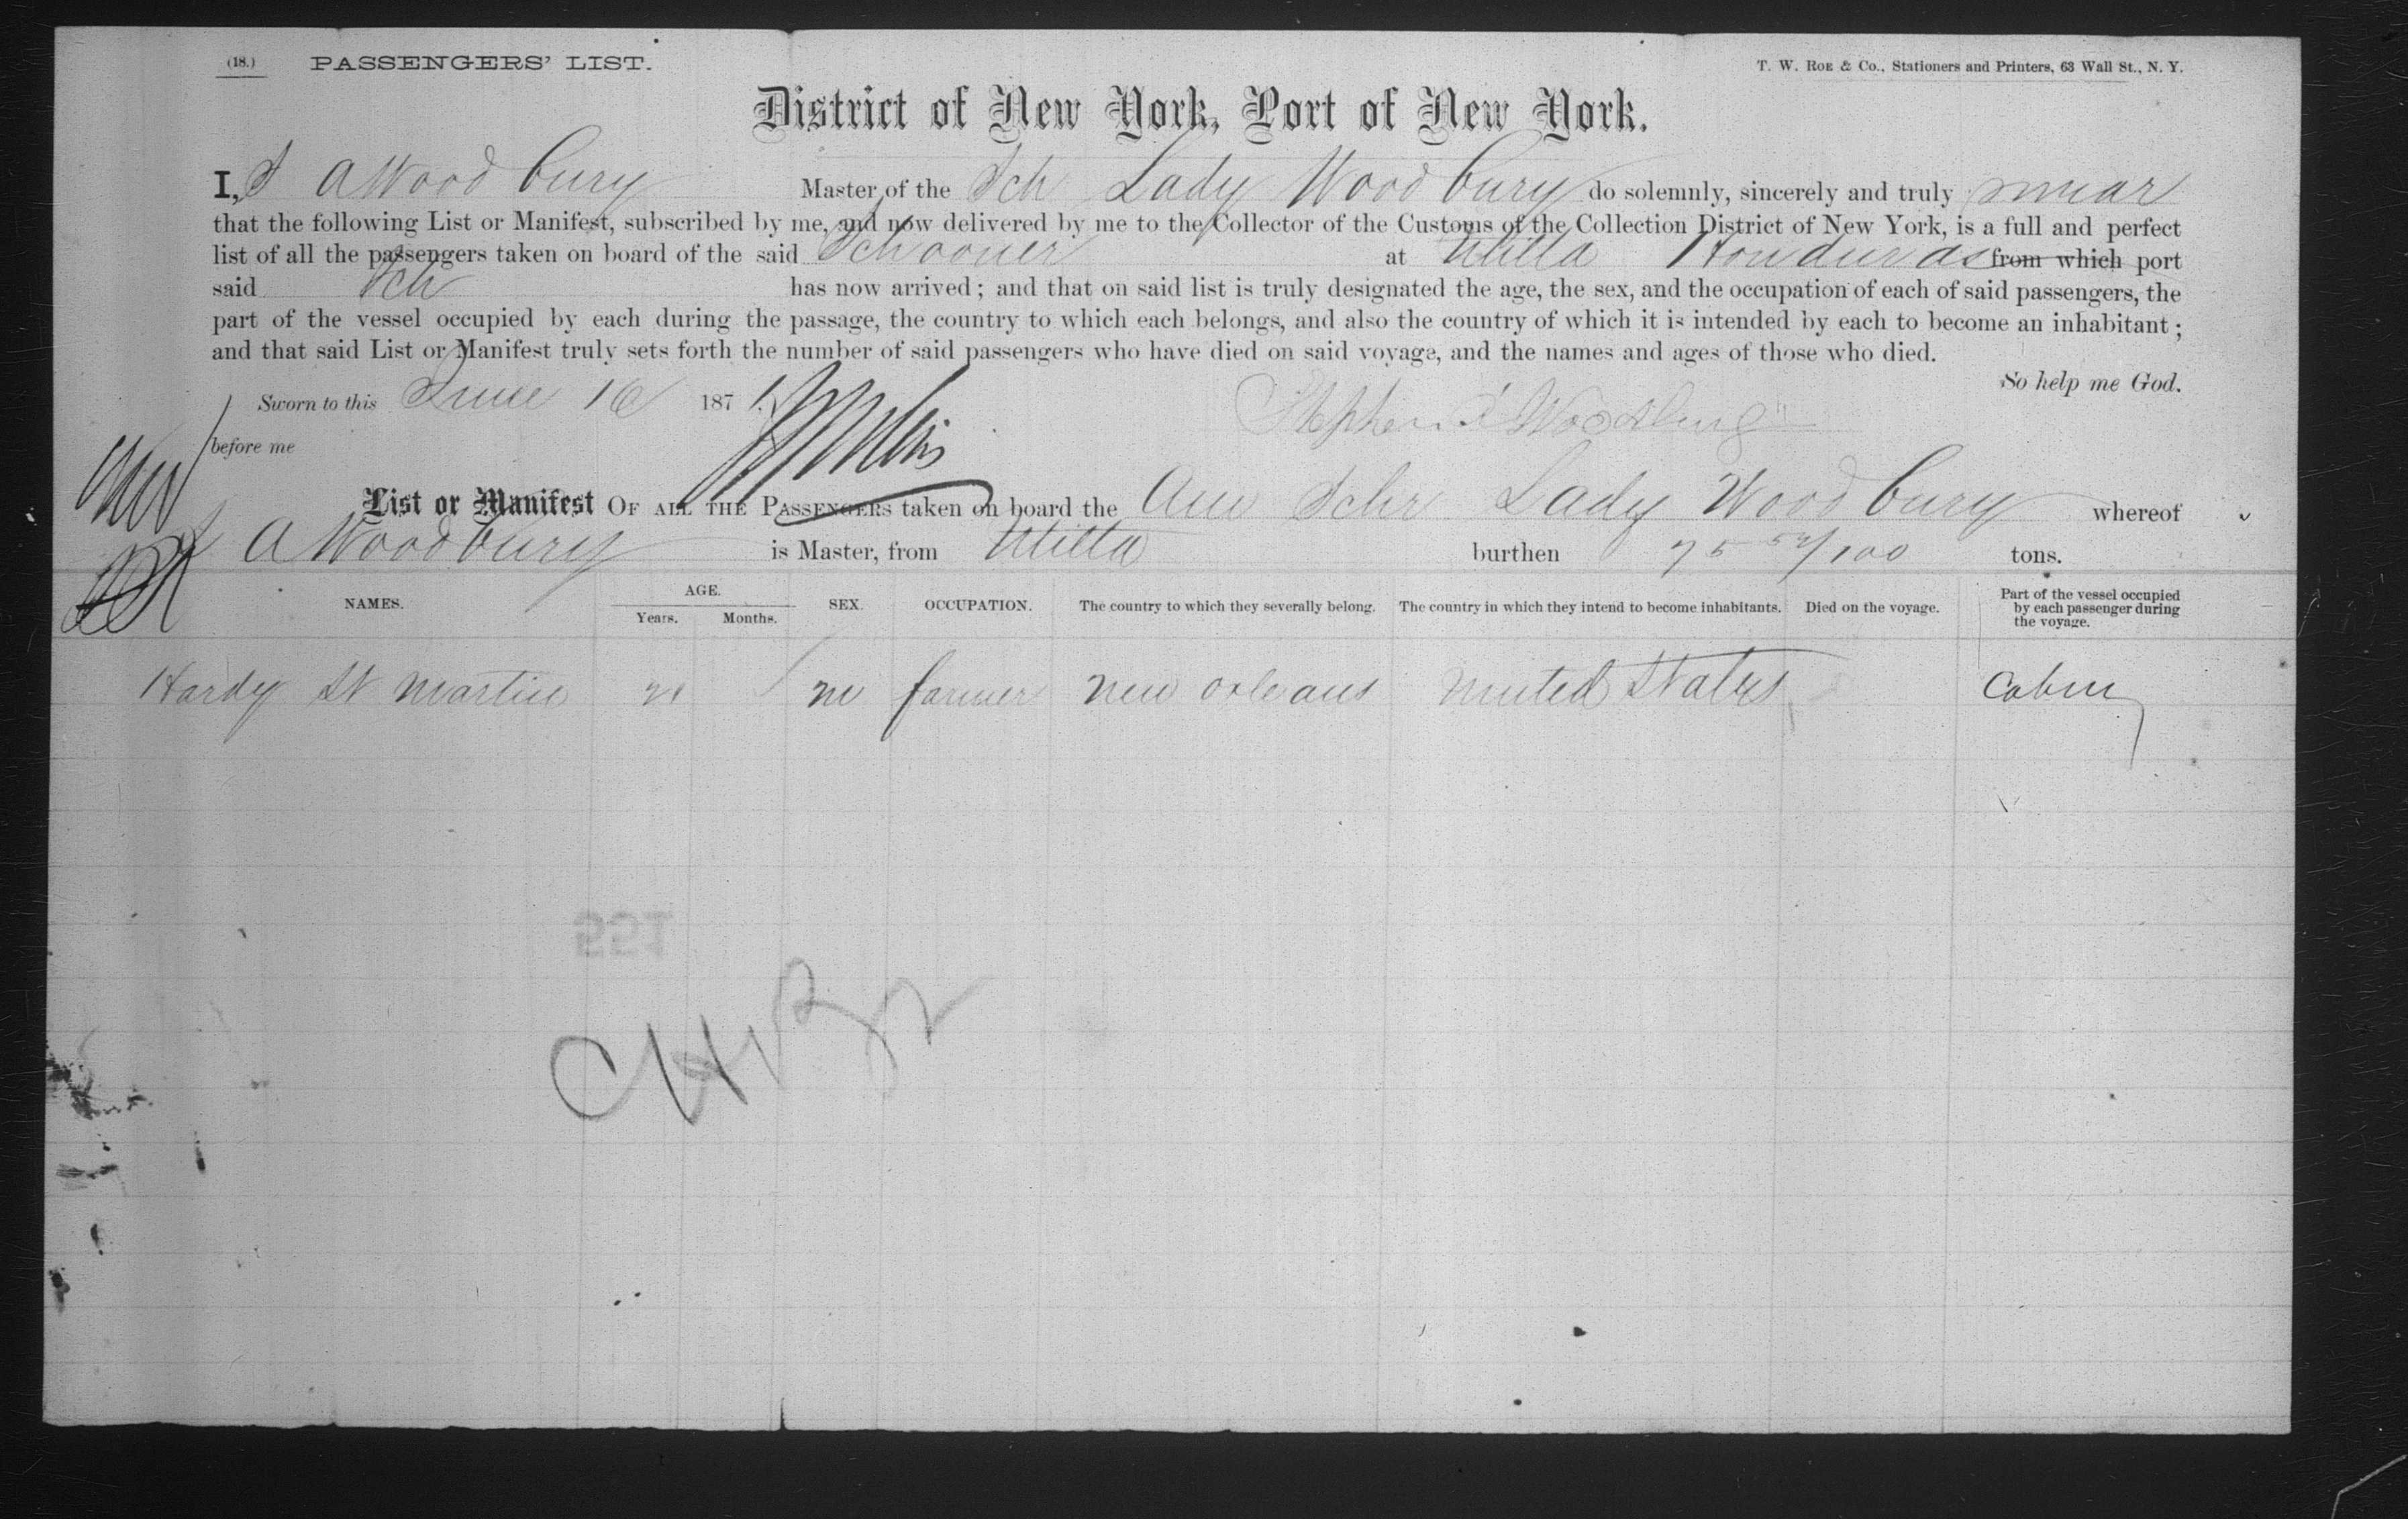 (18.) PASSENGERS' LIST. T. W. Roe & Co., Stationers and Printers, 63 Wall St., N. Y.
District of New York, Port of New York.
I, S A Woodbury Master of the Sch Lady Woodbury do solemnly, sincerely and truly swear
that the following List or Manifest, subscribed by me, and now delivered by me to the Collector of the Customs of the Collection District of New York, is a full and perfect
list of all the passengers taken on board of the said Schooner at Utilla Honduras from which port
said Sch has now arrived; and that on said list is truly designated the age, the sex, and the occupation of each of said passengers, the
part of the vessel occupied by each during the passage, the country to which each belongs, and also the country of which it is intended by each to become an inhabitant;
and that said List or Manifest truly sets forth the number of said passengers who have died on said voyage, and the names and ages of those who died.
So help me God.
Sworn to this June 16 1871 Stephen A Woodbury
before me
List or Manifest OF ALL THE PASSENGERS taken on board the Am Schr Lady Woodbury whereof
S A Woodbury is Master, from Utilla burthen 75 52/100 tons.
NAMES. AGE. Years. Months. SEX. OCCUPATION. The country to which they severally belong. The country in which they intend to become inhabitants. Died on the voyage. Part of the vessel occupied by each passenger during the voyage.
Hardy St Martin 21 m farmer new orleans united States Cabin
551